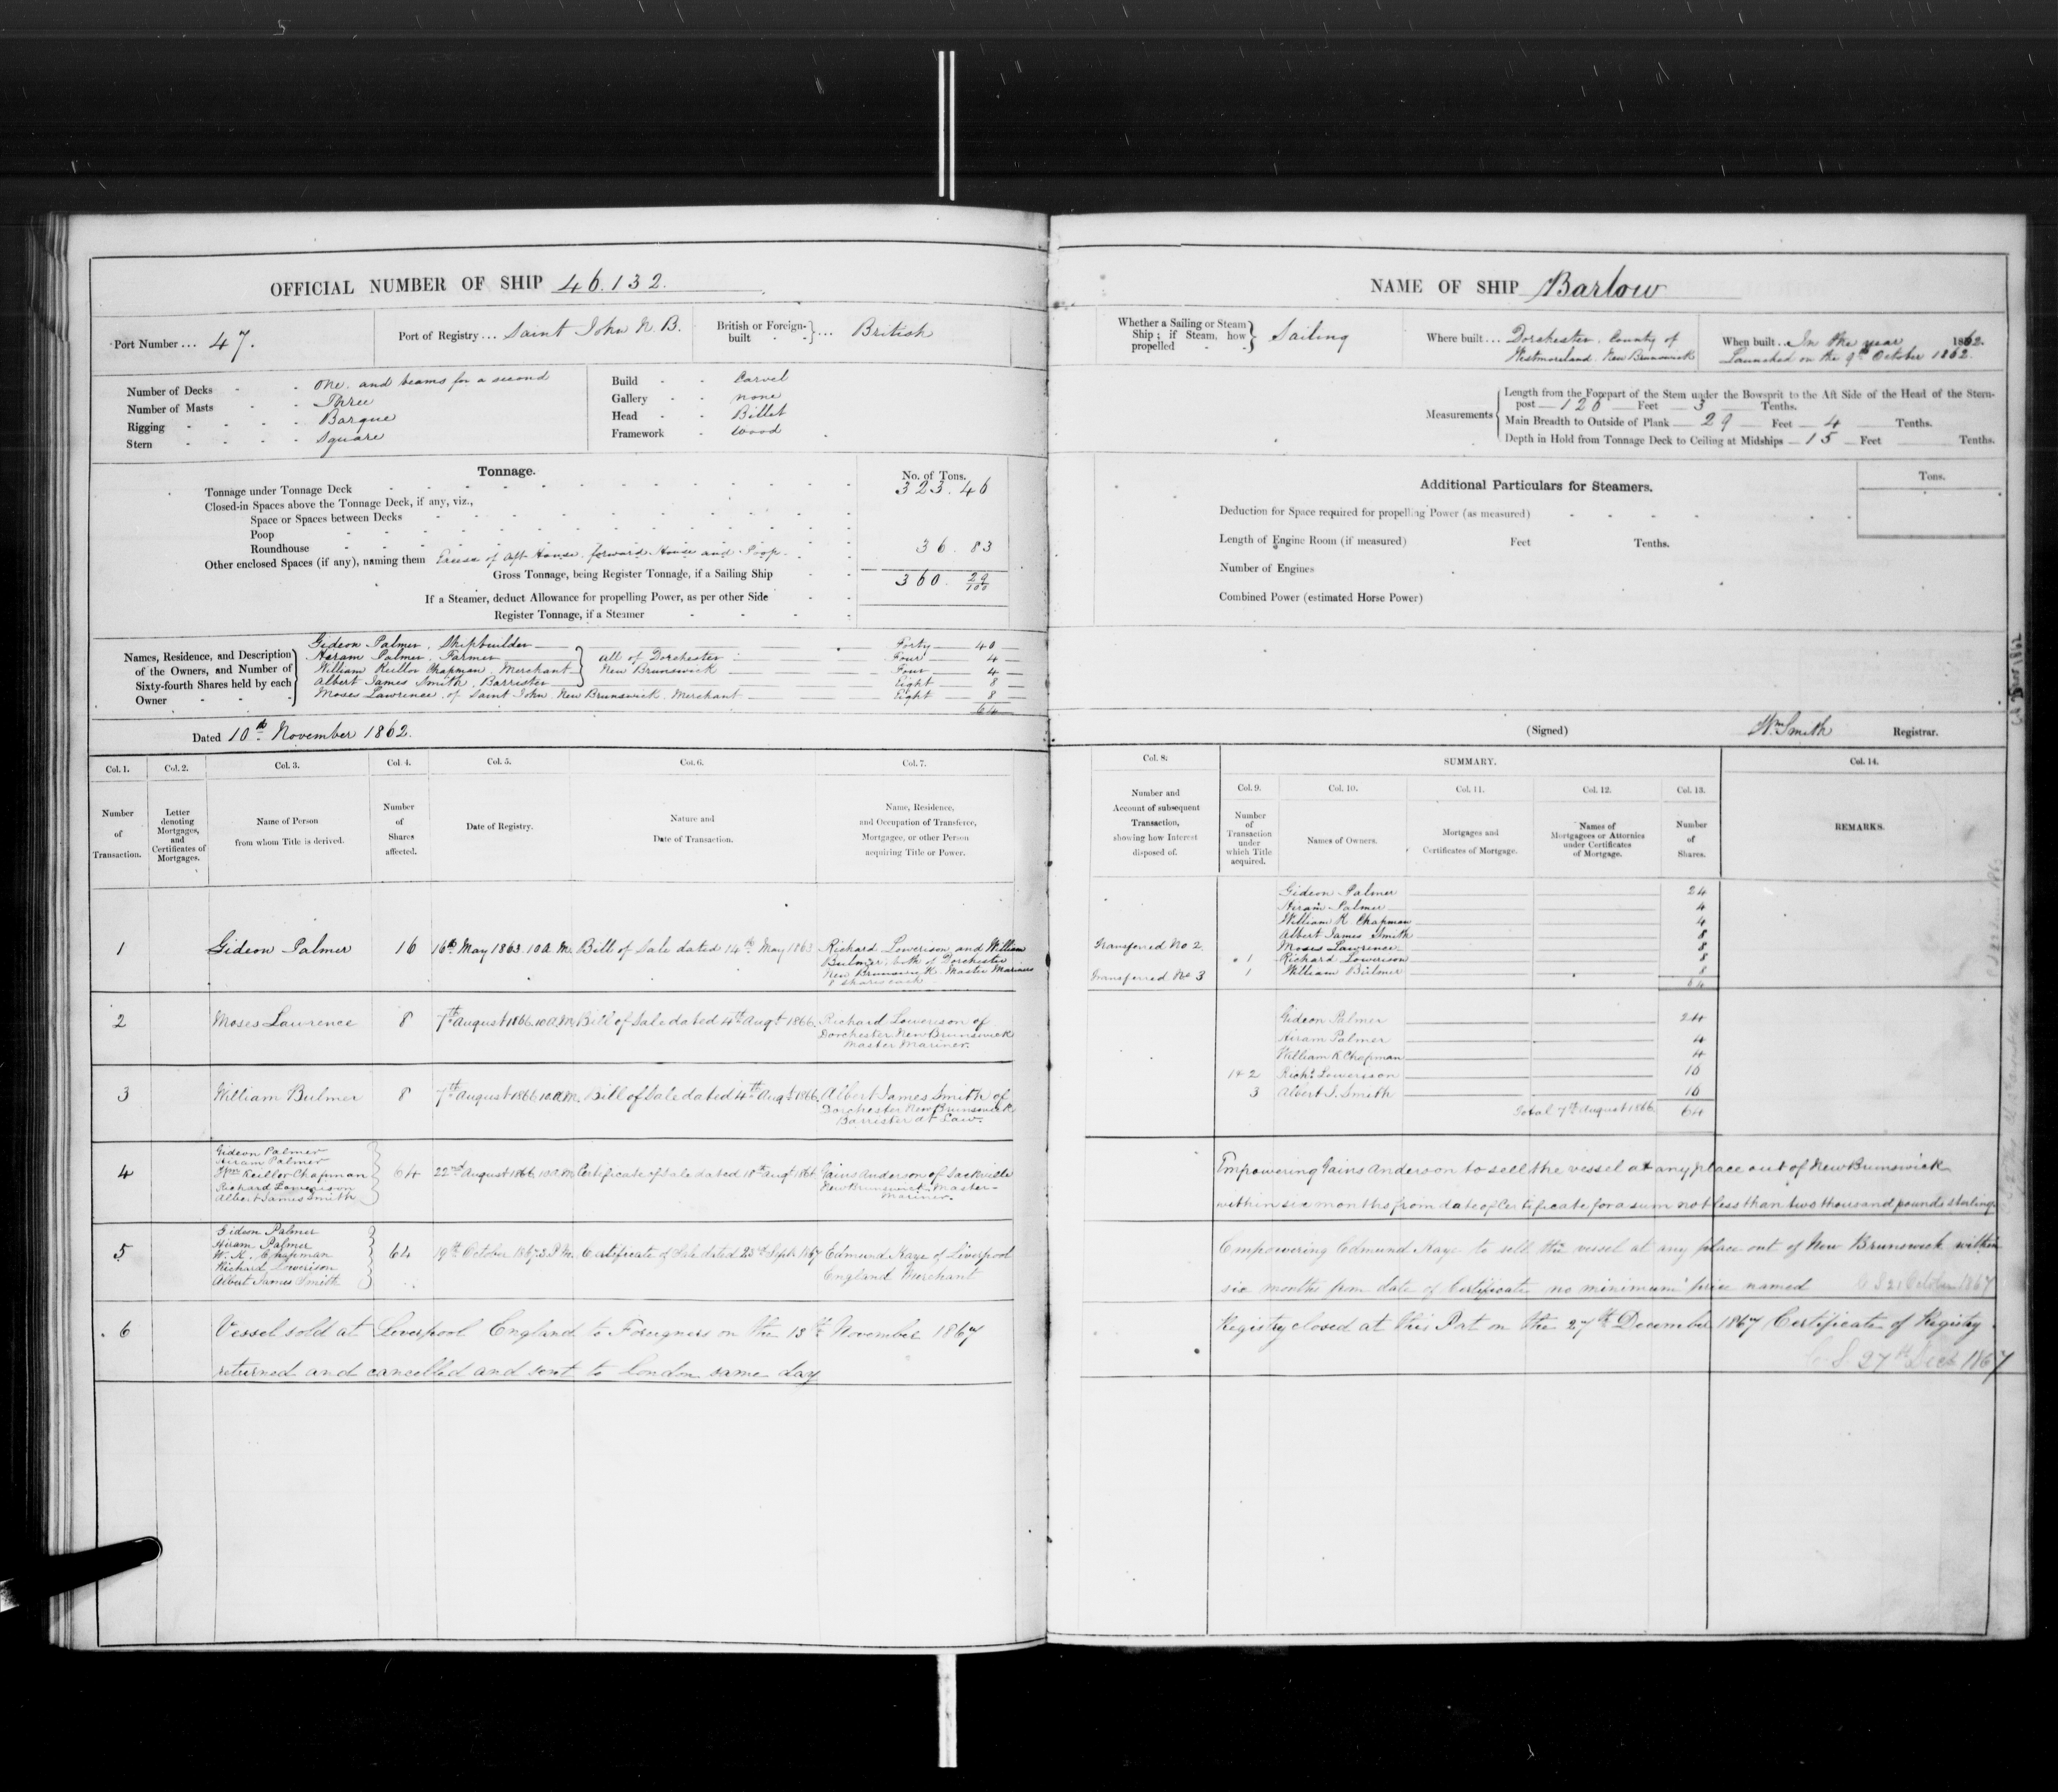 OFFICIAL NUMBER OF SHIP 46.132.
Port Number ... 47.
Port of Registry ... Saint John N.B.
British or Foreign-built ... British
Number of Decks - - One. and beams for a second
Number of Masts - - Three
Rigging - - - - Barque
Stern - - - - Square
Build - - Carvel
Gallery - - none
Head - - Billet
Framework - Wood
Tonnage.
No. of Tons.
Tonnage under Tonnage Deck 323.46
Closed-in Spaces above the Tonnage Deck, if any, viz.,
Space or Spaces between Decks
Poop
Roundhouse
Other enclosed Spaces (if any), naming them Excess of Aft House. forward House and Poop. 36.83
Gross Tonnage, being Register Tonnage, if a Sailing Ship 360. 29/100
If a Steamer, deduct Allowance for propelling Power, as per other Side
Register Tonnage, if a Steamer
Names, Residence, and Description of the Owners, and Number of Sixty-fourth Shares held by each Owner
Gideon Palmer, Shipbuilder Forty 40
Hiram Palmer, Farmer all of Dorchester Four 4
William Keillor Chapman, Merchant New Brunswick Four 4
Albert James Smith, Barrister Eight 8
Moses Lawrence, of Saint John, New Brunswick, Merchant Eight 8
64
Dated 10th November 1862.
Col. 1. Col. 2. Col. 3. Col. 4. Col. 5. Col. 6. Col. 7.
Number of Transaction.
Letter denoting Mortgages, and Certificates of Mortgages.
Name of Person from whom Title is derived.
Number of Shares affected.
Date of Registry.
Nature and Date of Transaction.
Name, Residence, and Occupation of Transferee, Mortgagee, or other Person acquiring Title or Power.
1 Gideon Palmer 16 16th May 1863. 10 A.M. Bill of Sale dated 14th May 1863 Richard Lowerison and William
Bulmer, both of Dorchester
New Brunswick. Master Mariners
8 shares each
2 Moses Lawrence 8 7th August 1866. 10 A.M. Bill of Sale dated 4th Augt 1866. Richard Lowerison of
Dorchester New Brunswick
Master Mariner.
3 William Bulmer 8 7th August 1866. 10 A.M. Bill of Sale dated 4th Augt 1866. Albert James Smith of
Dorchester New Brunswick
Barrister at Law.
4 Gideon Palmer
Hiram Palmer
Wm Keillor Chapman
Richard Lowerison
Albert James Smith
64 22nd August 1866 10 A.M. Certificate of Sale dated 18th Augt 1866 Gains Anderson of Sackville
New Brunswick. Master-
Mariner.
5 Gideon Palmer
Hiram Palmer
W. K. Chapman
Richard Lowerison
Albert James Smith
64 19th October 1867. 2 P.M. Certificate of Sale dated 23rd Sept 1867 Edmund Kaye of Liverpool
England Merchant
6 Vessel sold at Liverpool England to Foreigners on the 13th November 1867
returned and cancelled and sent to London same day
NAME OF SHIP Barlow
Whether a Sailing or Steam Ship; if Steam, how propelled Sailing
Where built ... Dorchester, County of
Westmoreland. New Brunswick
When built .. In the year 1862.
Launched on the 9th October 1862.
Measurements
Length from the Forepart of the Stem under the Bowsprit to the Aft Side of the Head of the Stern-
post 120 Feet 3 Tenths.
Main Breadth to Outside of Plank 29 Feet 4 Tenths.
Depth in Hold from Tonnage Deck to Ceiling at Midships 15 Feet Tenths.
Additional Particulars for Steamers.
Tons.
Deduction for Space required for propelling Power (as measured)
Length of Engine Room (if measured) Feet Tenths.
Number of Engines
Combined Power (estimated Horse Power)
(Signed) Wm Smith Registrar.
Col. 8. SUMMARY. Col. 14.
Col. 9. Col. 10. Col. 11. Col. 12. Col. 13.
Number and Account of subsequent Transaction, showing how Interest disposed of.
Number of Transaction under which Title acquired.
Names of Owners.
Mortgages and Certificates of Mortgage.
Names of Mortgagees or Attornies under Certificates of Mortgage.
Number of Shares.
REMARKS.
Gideon Palmer 24
Hiram Palmer 4
William K. Chapman 4
Albert James Smith 8
Transferred No 2 Moses Lawrence 8
1 Richard Lowerison 8
Transferred No 3 1 William Bulmer 8
64
Gideon Palmer 24
Hiram Palmer 4
William K Chapman 4
1 & 2 Richd Lowerison 16
3 Albert J. Smith 16
Total 7th August 1866 64
Empowering Gains Anderson to sell the vessel at any place out of New Brunswick
within six months from date of Certificate for a sum not less than two thousand pounds sterling.
Empowering Edmund Kaye to sell the vessel at any place out of New Brunswick within
six months from date of Certificate no minimum price named C S 21 October 1867
Registry closed at this Port on the 27th December 1867 Certificate of Registry
C. S. 27th Decr 1867